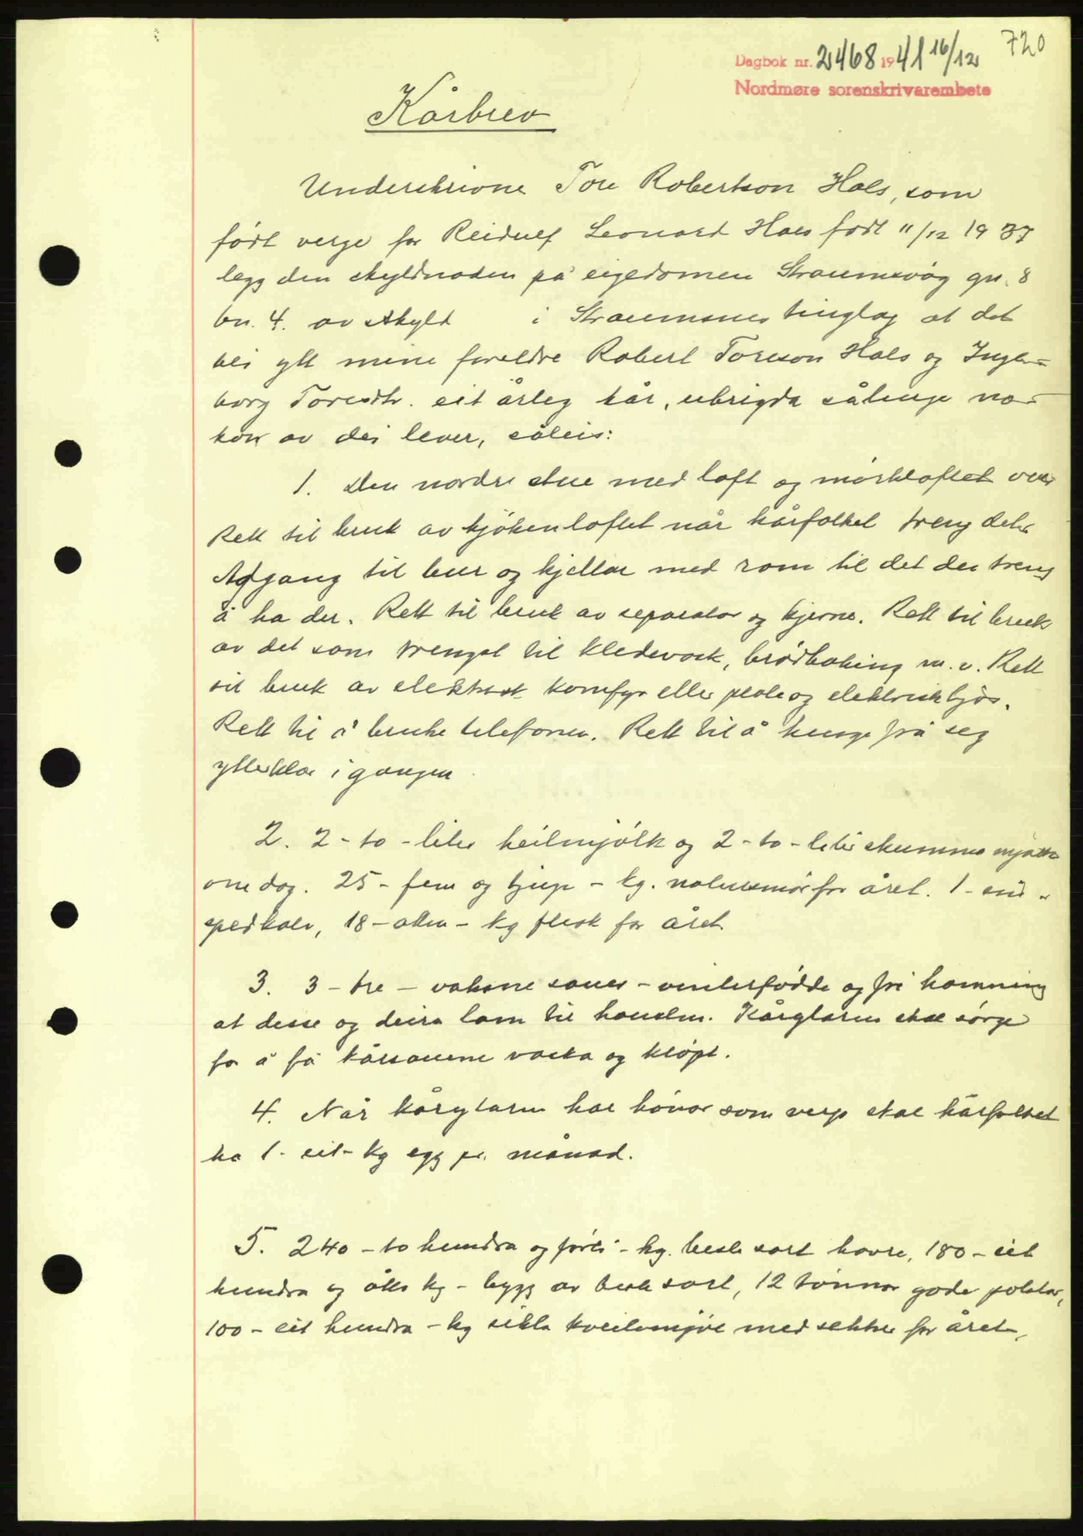 720
Dagbok nr. 2468 1941 16/12
Nordmøre sorenskrivarembete
Kårbrev
Underskrivne Tore Robertson Hals, som
født verje for Reidulf Leonard Hals født 11/12 1937
legg den skyldnaden på eigedomen Straumsvåg gn. 8
bn. 4. av skyld i Straumsnes tinglag at det
bli ytt mine foreldre Robert Toreson Hals og Inge-
borg Toresdtr. eit årleg kår, ubrigda sålenge no-
kon av dei lever, såleis:
1. Den nordre stue med loft og mørkloftet over
Rett til bruk av kjøkenloftet når kårfolket treng det.
Adgang til bur og kjellar med rom til det dei treng
å ha der. Rett til bruk av separator og kjerne. Rett til bruk
av det som trengst til kledevask, brødbaking m. v. Rett
til bruk av elektrisk komfyr eller plate og elektrisk ljos.
Rett til å bruke telefonen. Rett til å henge frå seg
ytterklær i gangen.
2. 2-to-liter heilmjølk og 2-to-liter skumma mjølk
om dag. 25-fem og tjuge-kg. natursmør for året. 1-ein-
spedkalv, 18-atten-kg flesk for året.
3. 3-tre-vaksne sauer-vinterfødde og fri hamning
åt desse og deira lam til hausten. Kårgjevaren skal sørge
for å få kårsauene vaska og kløpt.
4. Når kårgjevaren har hønor som verp skal kårfolket
ha 1-eit-kg egg pr. månad.
5. 240-to hundra og førti-kg. beste sort havre, 180-eit
hundra og åtti kg-bygg av beste sort, 12 tønner gode poteter,
100-eit hundra-kg sikta kveitemjøl med sekker for året,